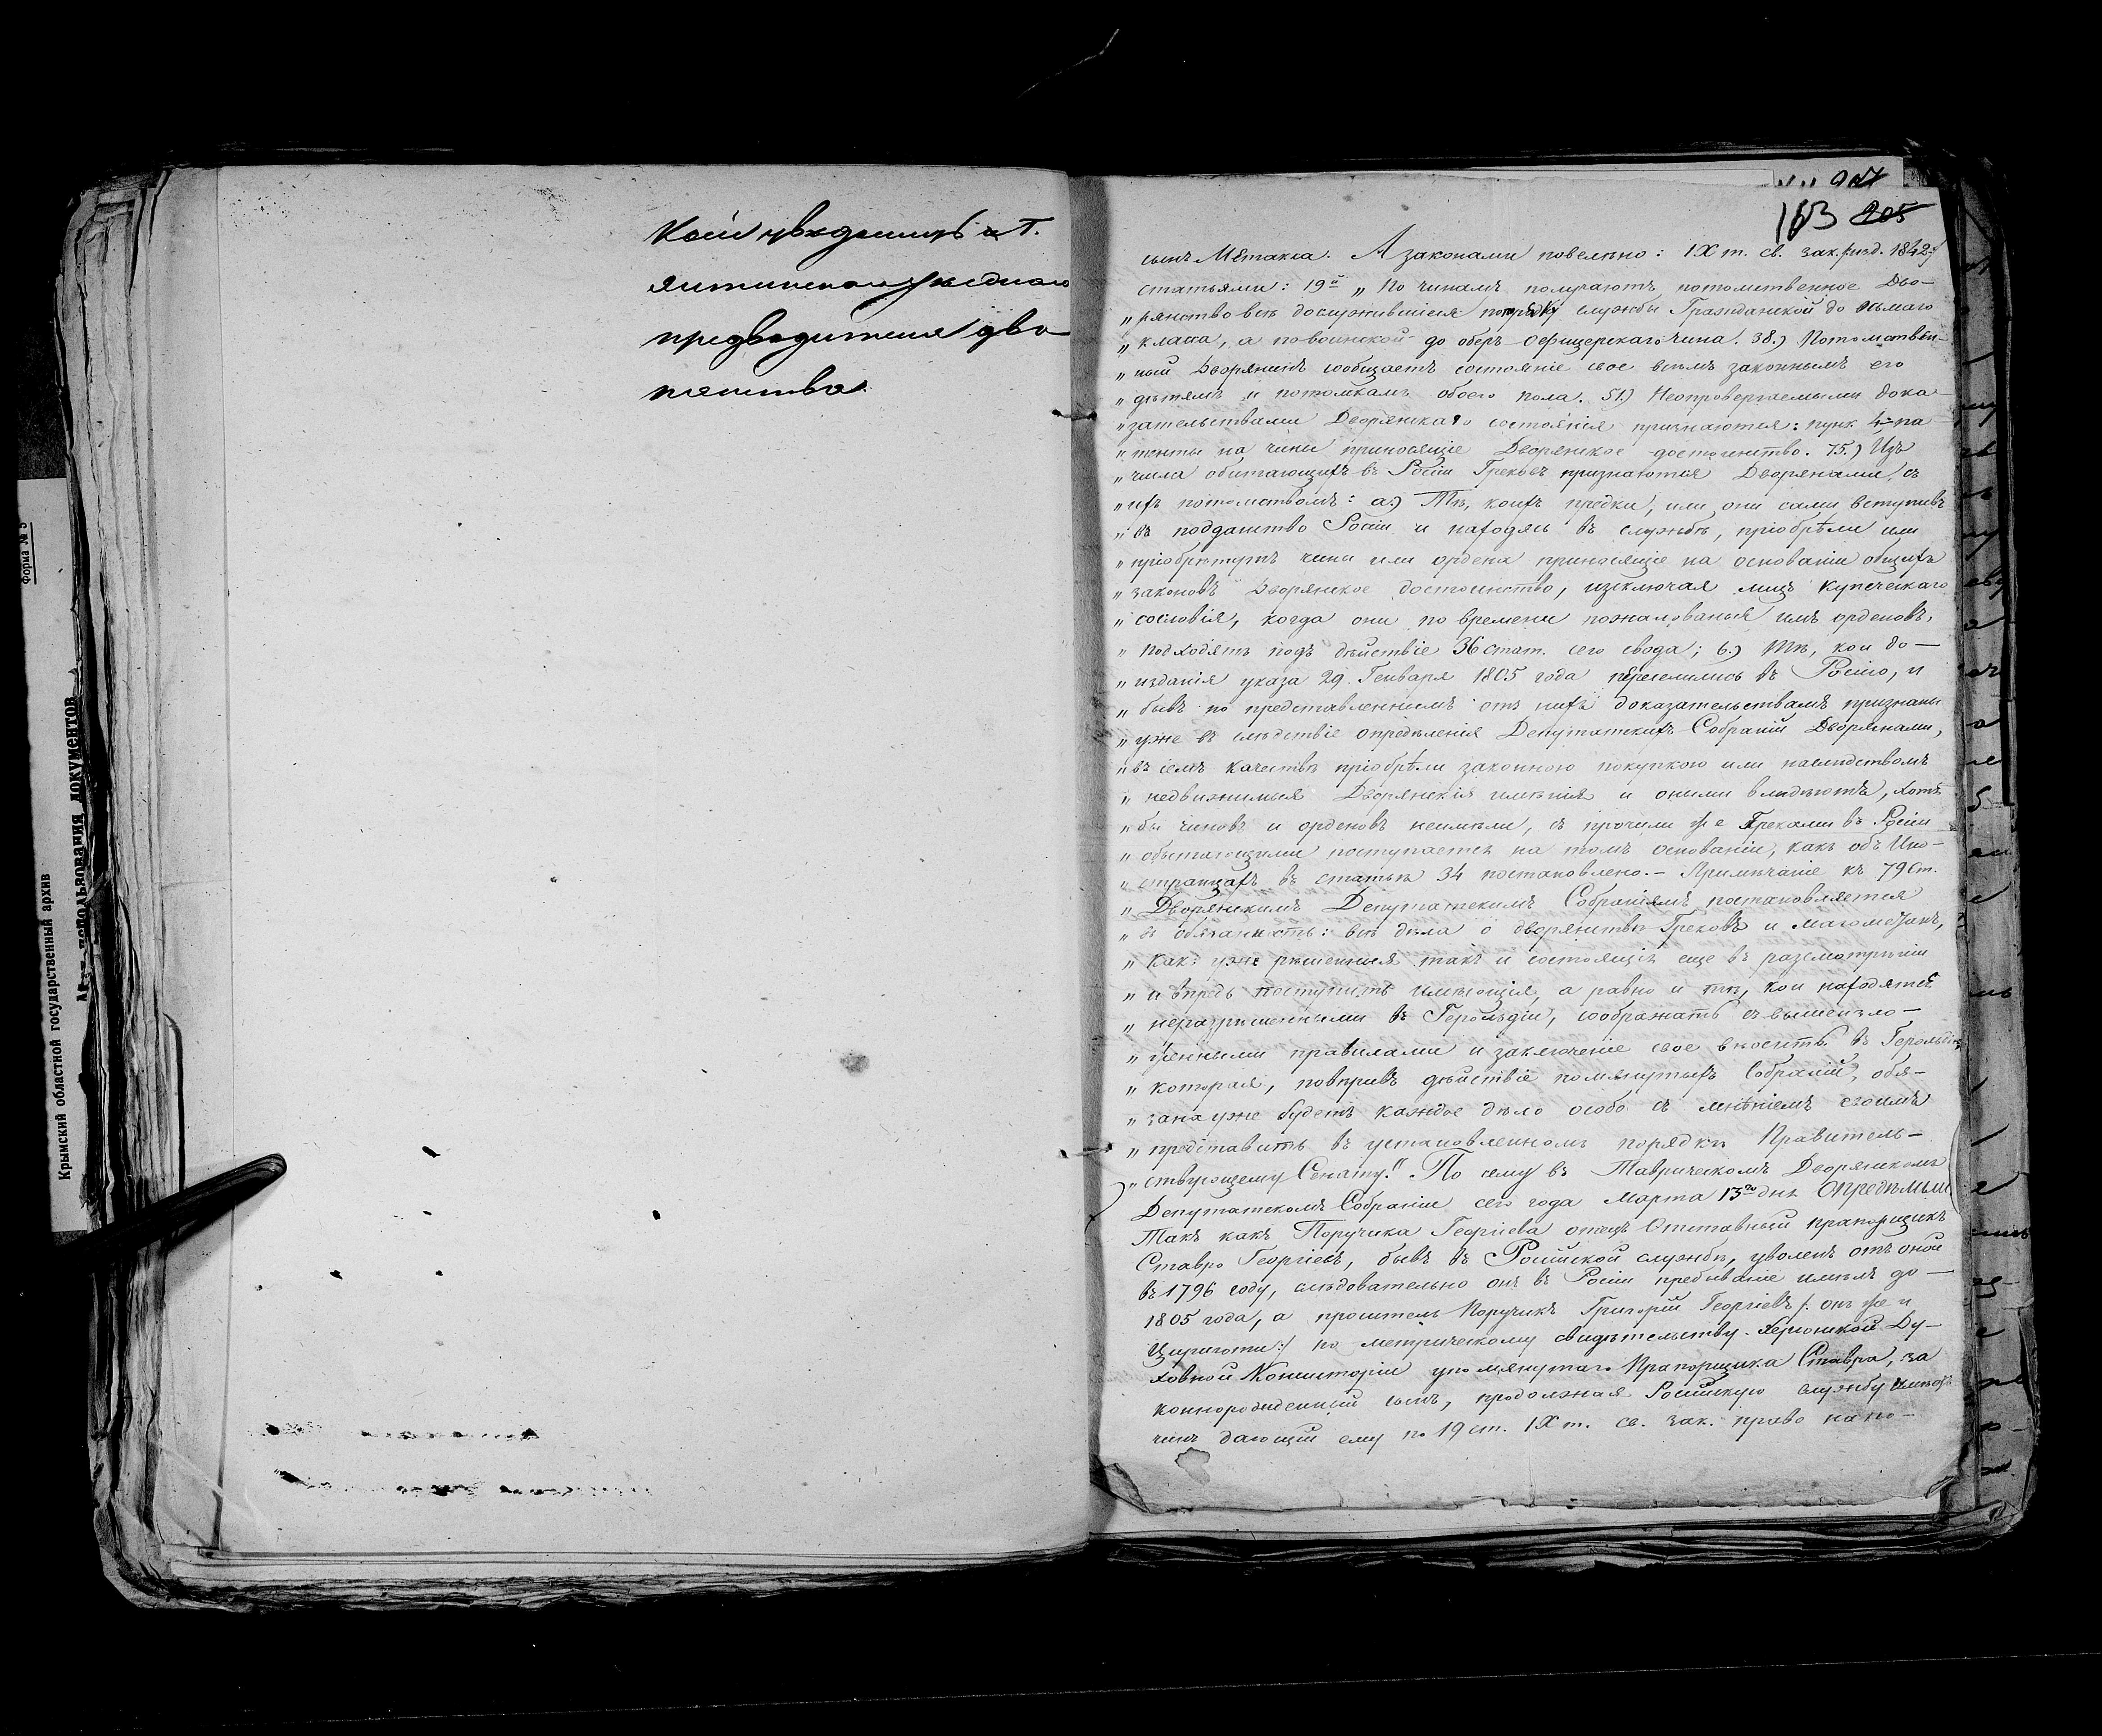 Кои уведомить г.
Ялтинскаго уезднаго
предводителя дво
рянства.
Форма № 5
Крымский областной государственный архив
использования документов
163 205
сынъ Метакса. А законами повелѣно: IX т. св. зак. /изд. 1842 г./
статьями: 19й „По чинамъ получаютъ потомственное Дво-
„рянство всѣ дослужившіеся по порядку службы Гражданской до осьмаго
„класса, а по воинской до оберъ-офицерскаго чина. 38.) Потомствен-
„ный Дворянинъ сообщаетъ состояніе свое всѣмъ законнымъ его
„дѣтямъ и потомкамъ обоего пола. 51.) Неопровергаемыми дока-
„зательствами Дворянскаго состоянія признаются: пунк. 4й па-
„тенты на чины приносящіе Дворянское достоинство. 75.) Изъ
„числа обитающихъ въ Росіи Грековъ признаются Дворянами, съ
„ихъ потомствомъ: а.) Тѣ, коихъ предки, или они сами вступивъ
„въ подданство Росіи и находясь въ службѣ, пріобрѣли или
„пріобрѣтутъ чины или ордена приносящіе на основаніи общихъ
„законовъ Дворянское достоинство, изключая лицъ Купеческаго
„сословія, когда они по времени пожалованія имъ орденовъ,
„подходятъ подъ дѣйствіе 36 стат. сего свода; б.) Тѣ, кои до-
„изданія указа 29. Генваря 1805 года переселились въ Росію, и
„бывъ по представленнымъ отъ нихъ доказательствамъ признаны
„уже въ слѣдствіе опредѣленія Депутатскихъ Собраній Дворянами,
„въ семъ качествѣ пріобрѣли законною покупкою или наслѣдствомъ
„недвижимыя Дворянскія имѣнія и оными владѣютъ, хотя
„бы чиновъ и орденовъ неимѣли, съ прочими же Греками въ Росіи
„обытающими поступается на томъ основаніи, какъ объ Ино-
„странцахъ въ статьѣ 34 постановлено.- Примѣчаніе къ 79 ст.
„Дворянскимъ Депутатскимъ Собраніямъ постановляется
„въ обязанность: всѣ дѣла о дворянствѣ Грековъ и магометанъ,
„какъ уже рѣшенныя такъ и состоящія еще въ разсмотрѣніи
„и впредь поступить имѣющія, а равно и тѣ, кои находятся
„неразрѣшенными въ Герольдіи, соображать съ вышеизло-
„женными правилами и заключеніе свое вносить въ Герольдію
„которая, повѣривъ дѣйствіе помянутыхъ Собраній, обя-
„зана уже будетъ каждое дѣло особо съ мнѣніемъ своимъ
„представить въ установленномъ порядкѣ Правитель-
„ствующему Сенату." По сему въ Таврическомъ Дворянскомъ
Депутатскомъ Собраніи сего года Марта 13го дня Опредѣлили
Такъ какъ Поручика Георгіева отецъ Отставный прапорщикъ
Ставро Георгіевъ, бывъ въ Російской службѣ, уволенъ отъ оной
въ 1796 году, слѣдовательно онъ въ Росіи пребываніе имѣлъ до-
1805 года, а проситель Поручикъ Григорій Георгіевъ /: онъ же и
Цириготи :/ по метрическому свидѣтельству Херсонской Ду-
ховной Консисторіи упомянутаго Прапорщика Ставра, за
коннорожденный сынъ, продолжая Російскую службу имѣетъ
чинъ дающій ему по 19 ст. IX т. св. зак. право на по-